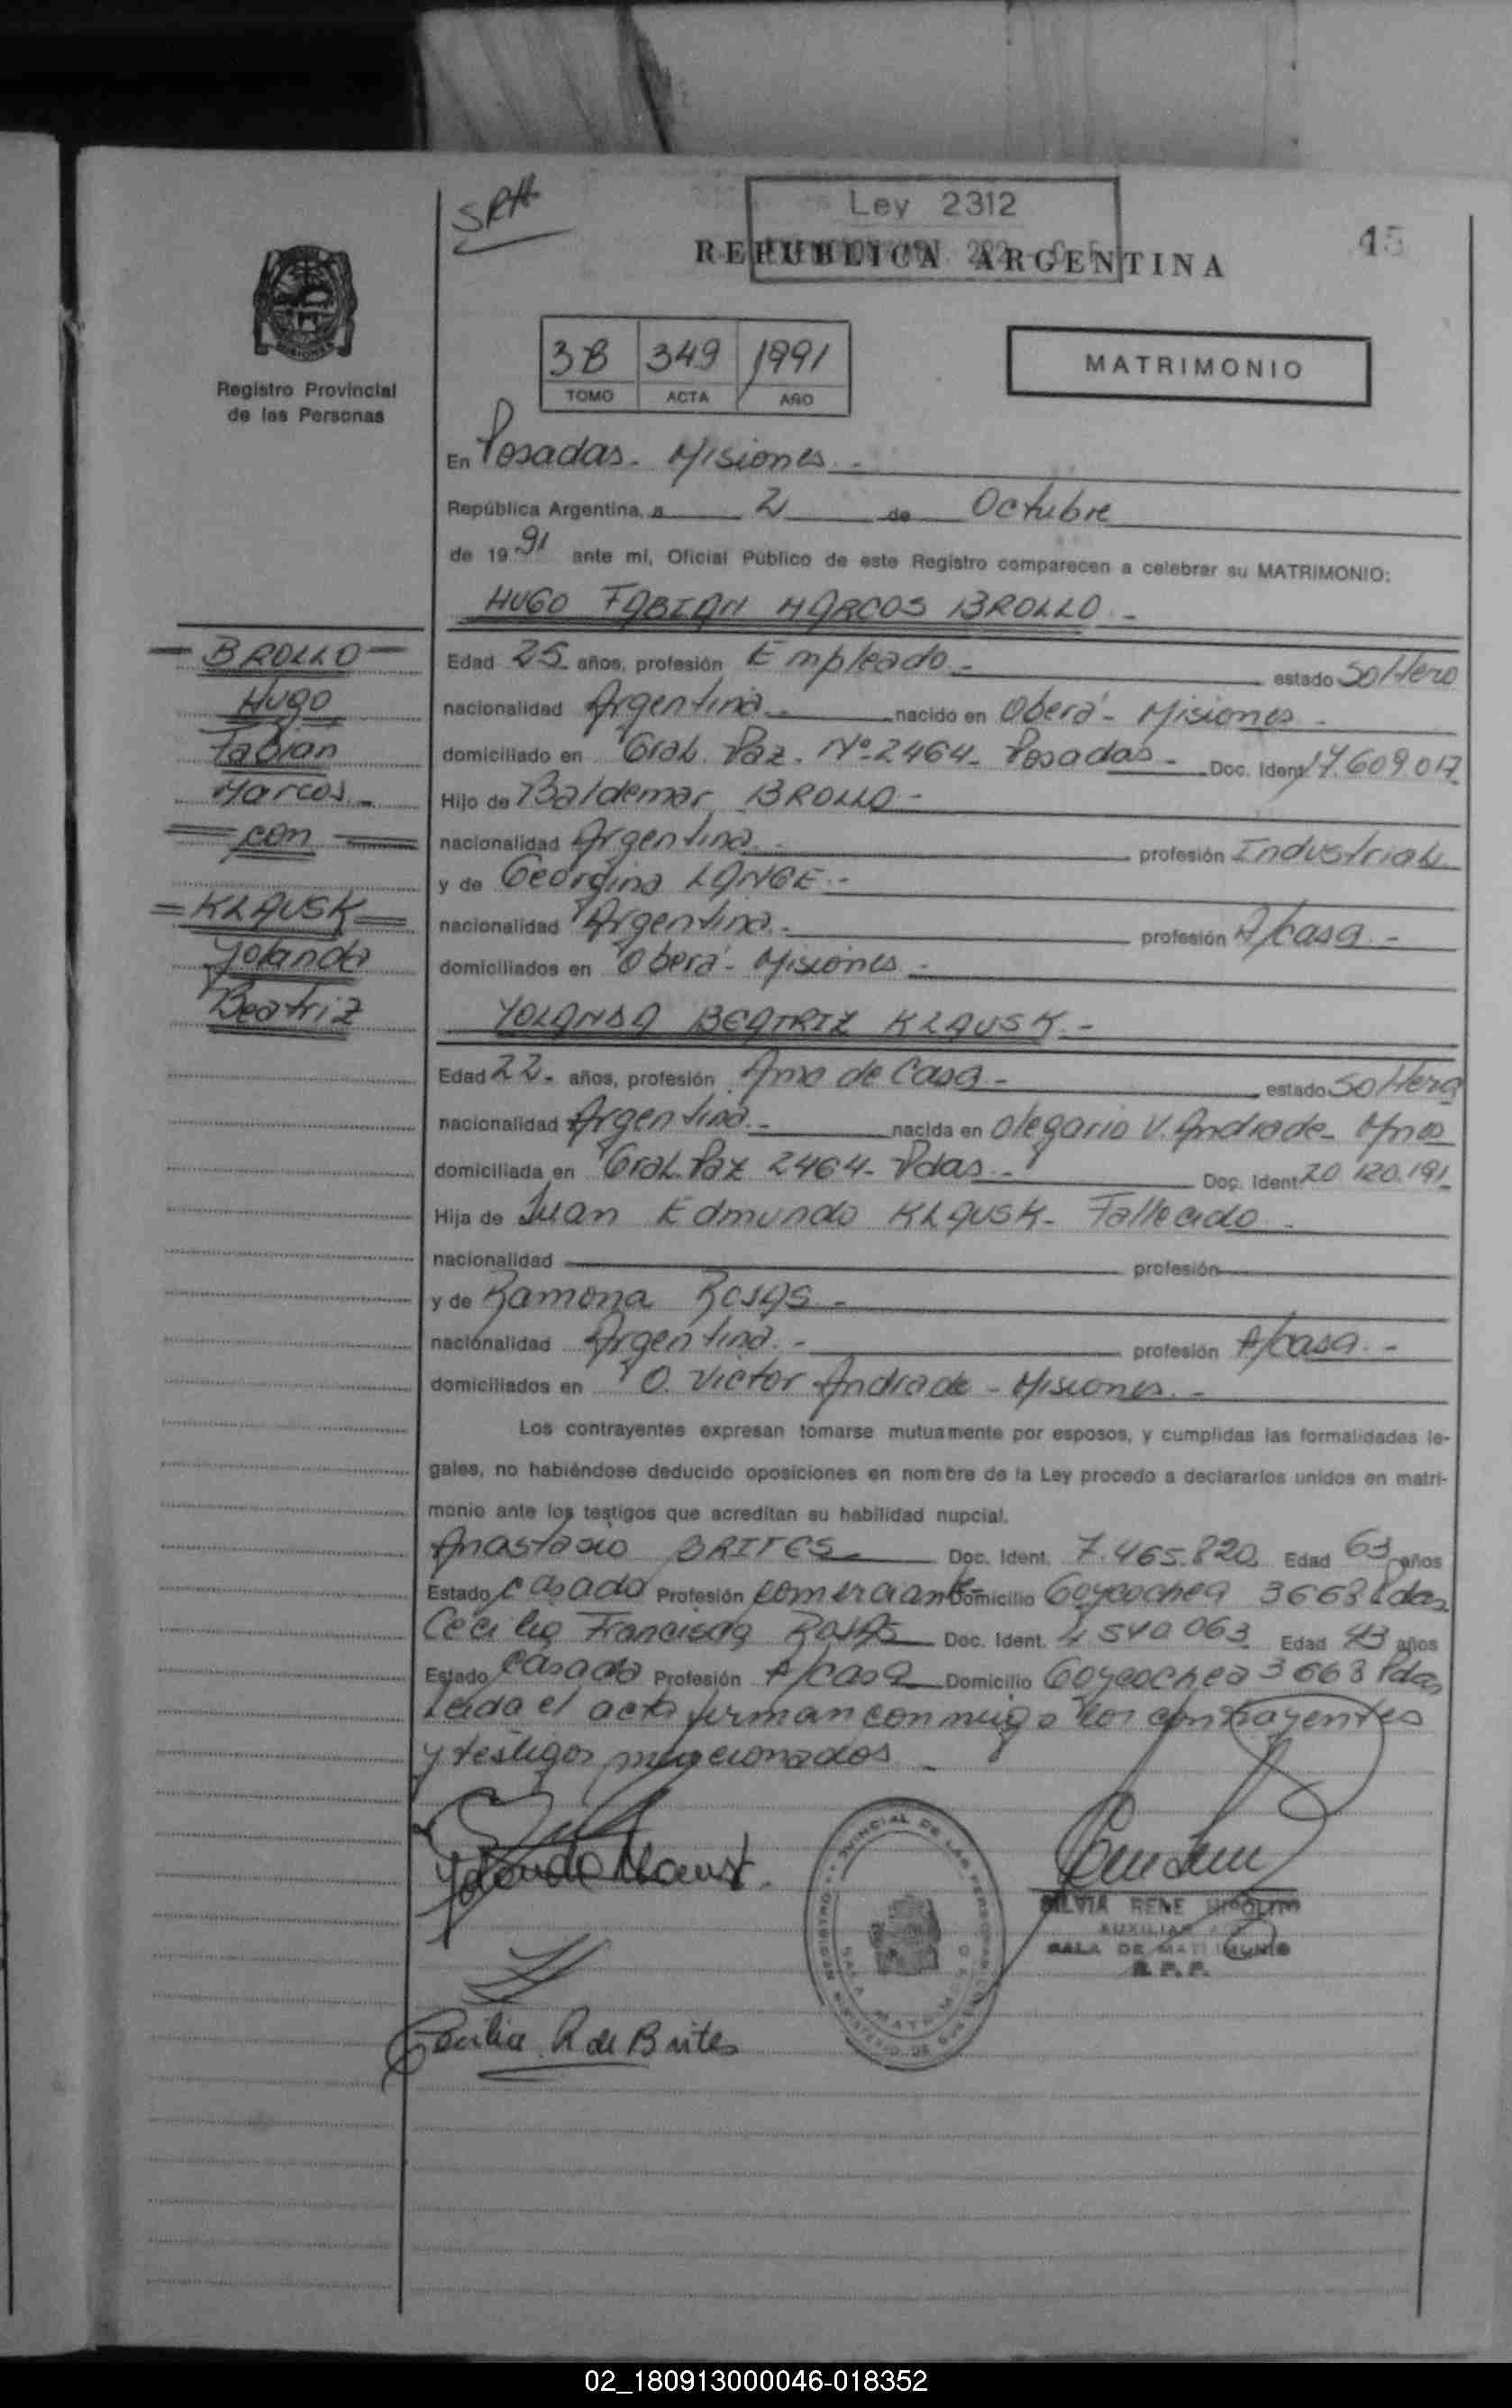 SRH
Ley 2312
REPUBLICA ARGENTINA
45
Registro Provincial
de las Personas
3B 349 1991
TOMO ACTA AÑO
MATRIMONIO
En Posadas - Misiones -
República Argentina, a 2 de Octubre
de 1991 ante mi, Oficial Público de este Registro comparecen a celebrar su MATRIMONIO:
HUGO FABIAN MARCOS BROLLO -
- BROLLO -
Hugo
Fabian
Marcos -
= con =
= KLAUSK =
Yolanda
Beatriz
Edad 25 años, profesión Empleado - estado Soltero
nacionalidad Argentina - nacido en Oberá - Misiones -
domiciliado en Gral. Paz. Nº 2464 - Posadas - Doc. Ident. 17.609.017
Hijo de Baldemar BROLLO -
nacionalidad Argentina - profesión Industrial
y de Georgina LANGE -
nacionalidad Argentina - profesión A/casa -
domiciliados en Oberá - Misiones -
YOLANDA BEATRIZ KLAUSK -
Edad 22 - años, profesión Ama de Casa - estado Soltera
nacionalidad Argentina - nacida en Olegario V. Andrade - Mnes
domiciliada en Gral. Paz 2464 - Pdas - Doc. Ident. 20.120.191
Hija de Juan Edmundo KLAUSK - Fallecido -
nacionalidad profesión
y de Ramona ROSAS -
nacionalidad Argentina - profesión A/casa -
domiciliados en O. Victor Andrade - Misiones -
Los contrayentes expresan tomarse mutuamente por esposos, y cumplidas las formalidades le-
gales, no habiéndose deducido oposiciones en nombre de la Ley procedo a declararlos unidos en matri-
monio ante los testigos que acreditan su habilidad nupcial.
Anastasio BRITES - Doc. Ident. 7.465.820 Edad 63 años
Estado Casado Profesión comerciante - Domicilio Goycochea 3668 Pdas
Cecilia Francisca ROSAS Doc. Ident. 4.540.063 Edad 43 años
Estado Casada Profesión A/casa Domicilio Goycochea 3668 Pdas
Leida el acta firman conmigo los contrayentes
y testigos mencionados -
Yolanda Klausk.
SILVIA RENE HIPOLITO
AUXILIAR
SALA DE MATRIMONIO
R. P. P.
Cecilia R de Brites
02_180913000046-018352